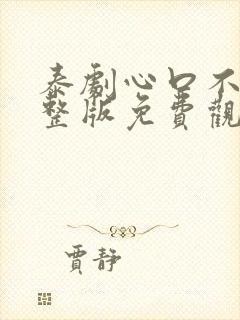 泰劇心口不
整版免費觀
賈靜